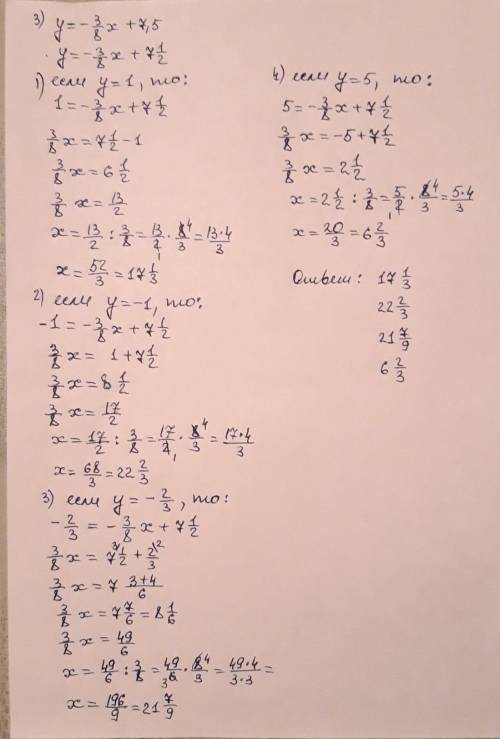 3) y = -3/8 x + 7,5
y = -3/8 x + 7 1/2
1) если y = 1, то:
1 = -3/8 x + 7 1/2
3/8 x = 7 1/2 - 1
3/8 x = 6 1/2
3/8 x = 13/2
x = 13/2 : 3/8 = 13/2 · 8/3 = 13·4/3
x = 52/3 = 17 1/3
2) если y = -1, то:
-1 = -3/8 x + 7 1/2
3/8 x = 1 + 7 1/2
3/8 x = 8 1/2
3/8 x = 17/2
x = 17/2 : 3/8 = 17/2 · 8/3 = 17·4/3
x = 68/3 = 22 2/3
3) если y = -2/3, то:
-2/3 = -3/8 x + 7 1/2
3/8 x = 7 1/2 + 2/3
3/8 x = 7 3+4/6
3/8 x = 7 7/6 = 8 1/6
3/8 x = 49/6
x = 49/6 : 3/8 = 49/6 · 8/3 = 49·4/3·3 =
x = 196/9 = 21 7/9
4) если y = 5, то:
5 = -3/8 x + 7 1/2
3/8 x = -5 + 7 1/2
3/8 x = 2 1/2
x = 2 1/2 : 3/8 = 5/2 · 8/3 = 5·4/3
x = 20/3 = 6 2/3
Ответ: 17 1/3
22 2/3
21 7/9
6 2/3